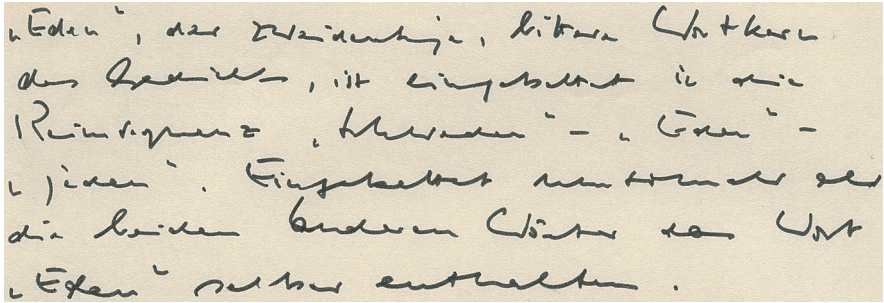 „Eden“, der zweideutige, bittere Wortkern
des Gedichts, ist eingebettet in die
Reimsequenz „Schweden“ – „Eden“ –
„jeden“. Eingebettet umsomehr als
die beiden anderen Wörter das Wort
„Eden“ selber enthalten.